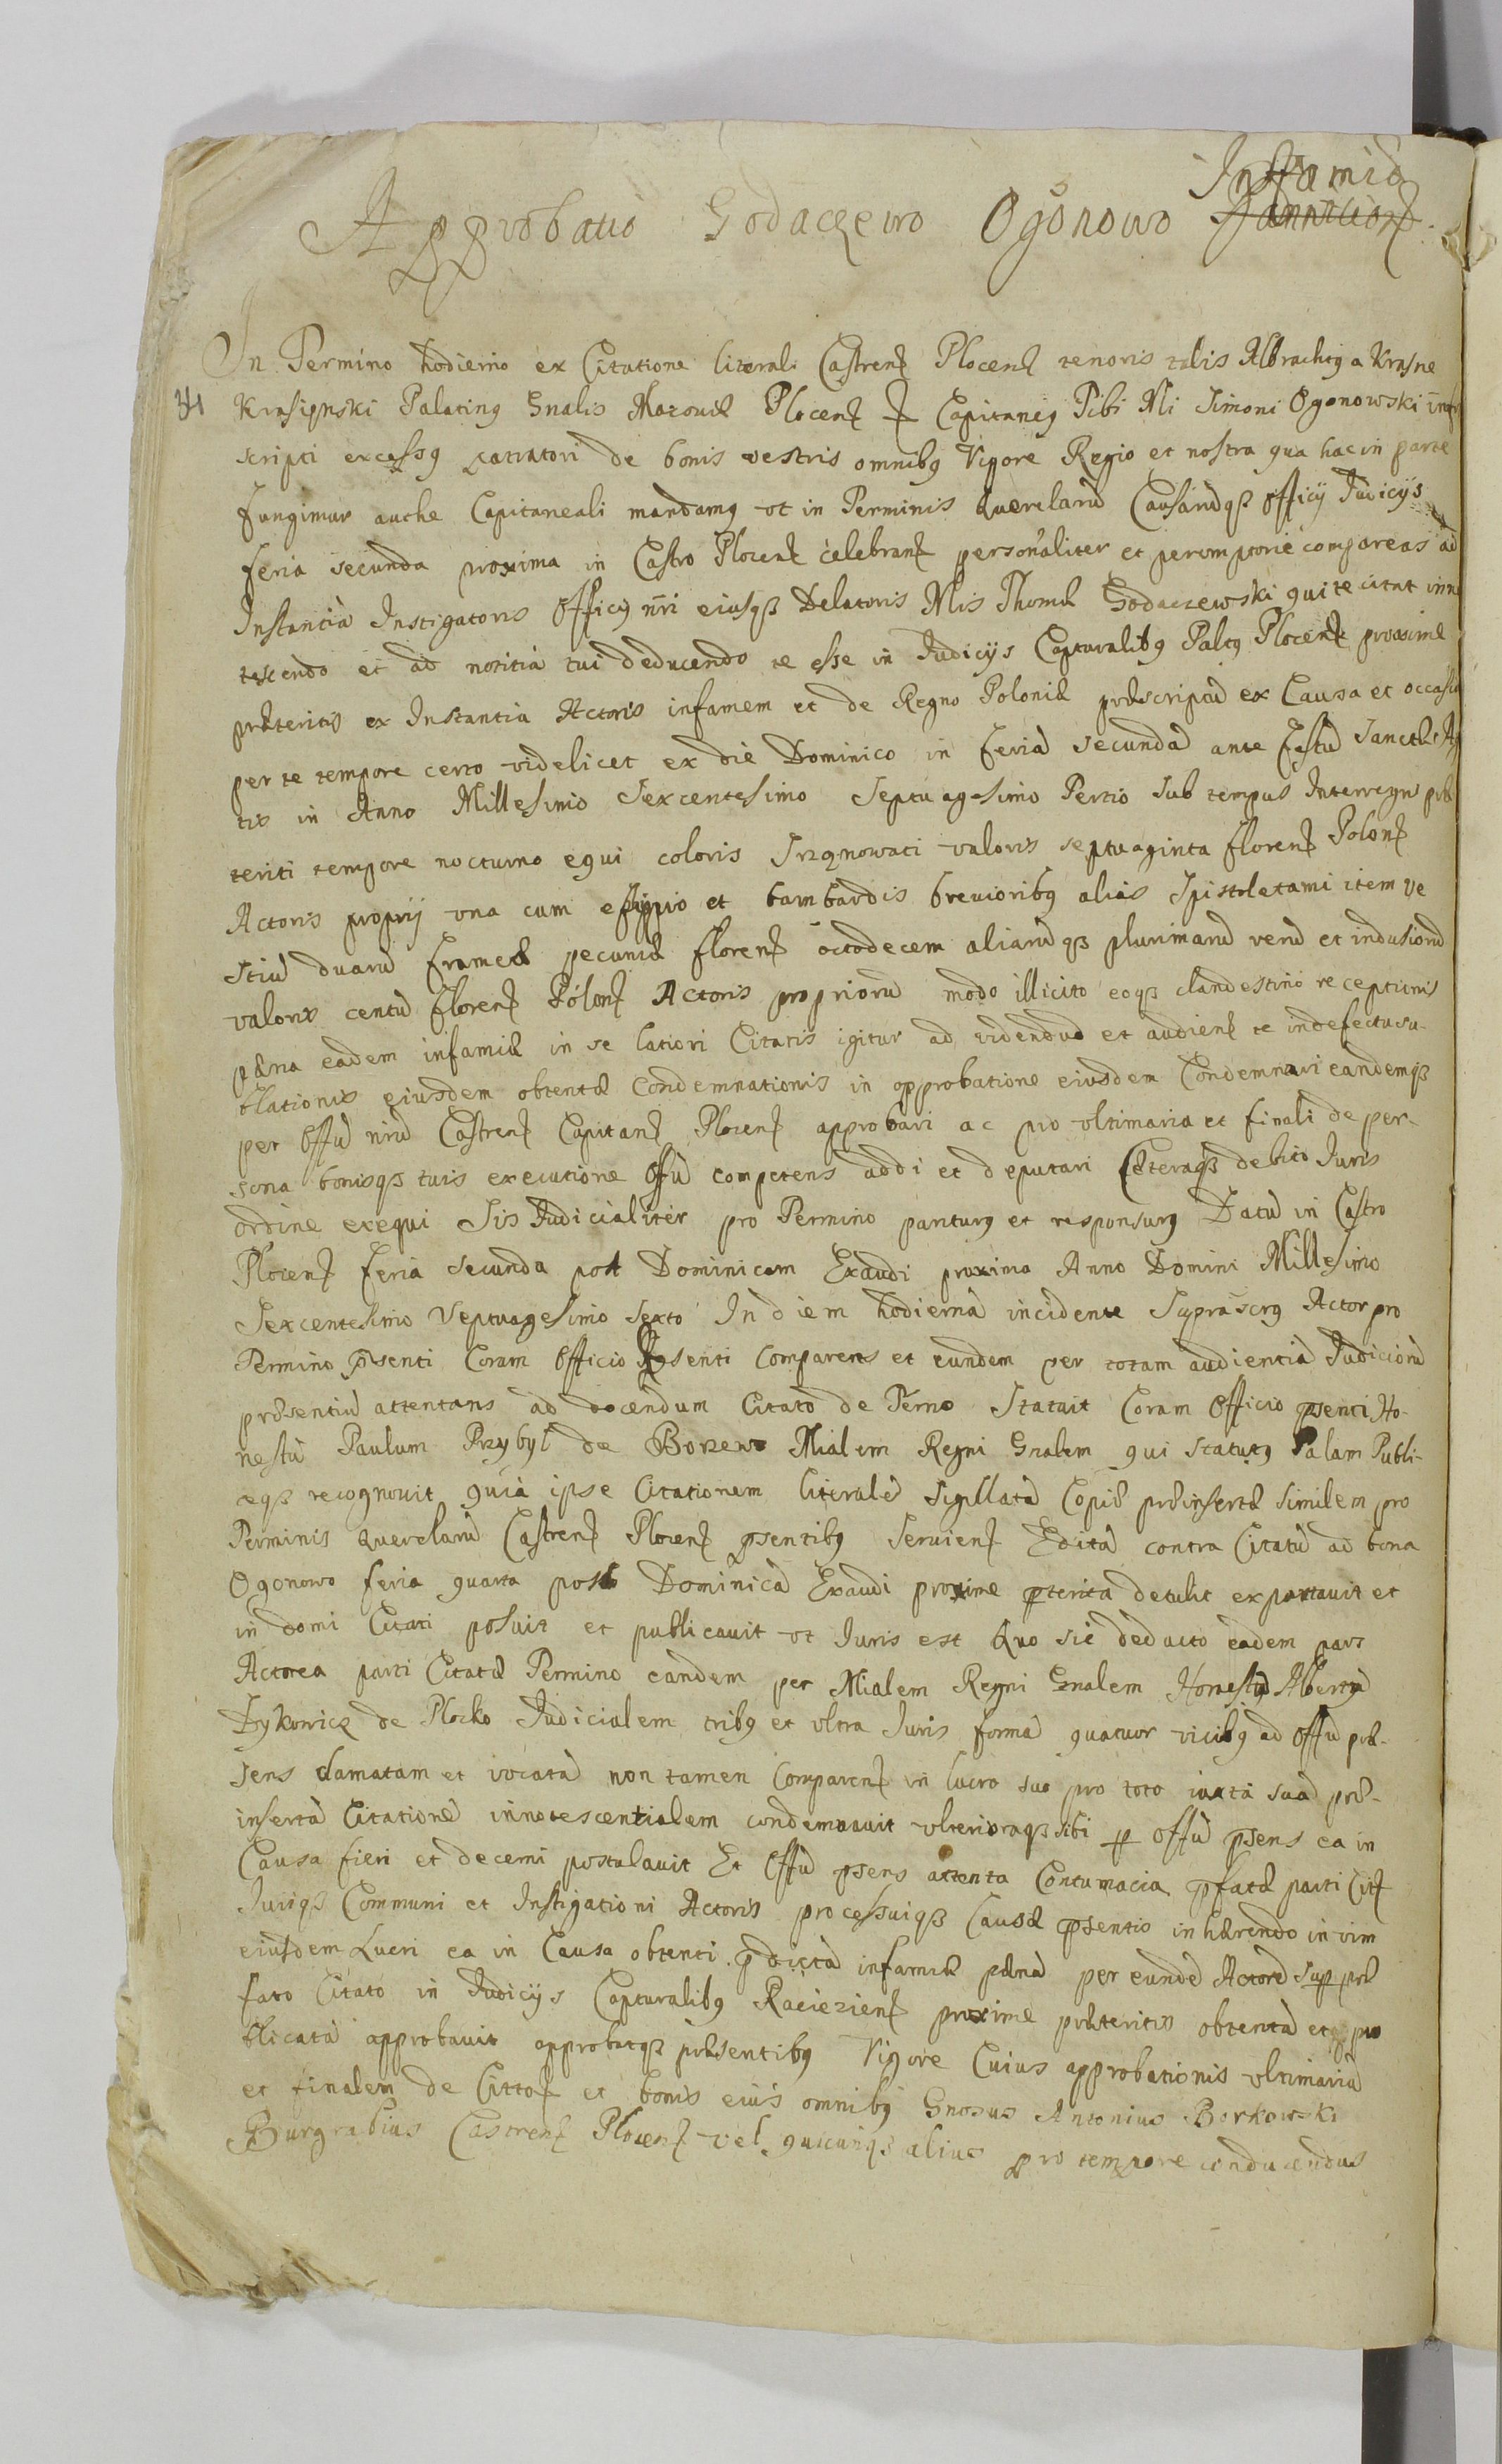 Infamiæ
Approbatio Godaczewo Ogonowo
In Termino hodierno ex Citatione literali Castren Plocen tenoris talis Albrachtus a Krasne
Krasinski Palatinus Gnalis Mazouiæ Plocen & Capitaneus Tibi Nli Simoni Ogonowski infra
scripti excessus patratori de bonis vestris omnibus Vigore Regio et nostra qua hac in parte
fungimur authe Capitaneali mandamus vt in Terminis Querelarū Causarūq3 Officij Judicijs
feria secunda proxima in Castro Plocen celebran personaliter et peremptorie compareas ad
Instantiā Instigatoris Officij nri eiusq3 Delatoris Nlis Thomæ Godaczewski qui te citat inno
tescendo et ad notitiā tui deducendo te esse in Judicijs Capturalibus Paltus Plocen proxime
præteritis ex Instantia Actoris infamem et de Regno Poloniæ proscriptū ex Causa et occasio
per te tempore certo videlicet ex die Dominico in feriā secundā ante Festū Sanctæ
tis in Anno Millesimo Sexcentesimo Septuagesimo Tertio sub tempus Interregni præ
teriti tempore nocturno equi coloris Srzqnowati valoris septuaginta floren Polon
Actoris proprij vna cum ephippio et bambardis breuioribus alias Spistoletami item ve
stiū duarū frameæ pecuniæ floren octodecem aliarūq3 plurimarū rerū et indusiorū
valoris centū floren Polon Actoris propriorū modo illicito eoq3 clandestino receptionis
pæna eadem infamiæ in se latiori Citatis igitur ad videndūd et audien te indefectu su-
blationis eiusdem obtentæ Condemnationis in approbatione eiusdem Condemnari eandemq3
per Offū nrū Castren Capitan Plocen approbari ac pro vltimaria et finali de per-
sona bonisq3 tuis executione Offū competens addi et deputari Cæteraq3 debito Juris
ordine exequi Sis Judicialiter pro Termino pariturus et responsurus Datū in Castro
Plocen feria secunda post Dominicam Exaudi proxima Anno Domini Millesimo
Sexcentesimo Septuagesimo Sexto In diem hodiernā incidente Suprascrus Actor pro
Termino pñsenti Coram Officio pñsenti Comparens et eundem per totam audientiā Judiciorū
præsentiū attentans ad docendum Citato de Terno Statuit Coram Officio pñsenti Ho-
nestū Paulum Przybył de Borzewo Nlialem Regni Gnalem qui statutus Palam Publi-
ceq3 recognouit quia ipse Citationem literalē Sigillatā Copiæ præinsertæ similem pro
Terminis Querelarū Castren Plocen pñsentibus seruien Editā contra Citatū ad bona
Ogonowo feria quarta post Dominicā Exaudi proxime pterita detulit exportauit et
in domi Citati posuit et publicauit vt Juris est Quo sic deducto eadem pars
Actorea parti Citatæ Termino eandem per Nlialem Regni Gnalem Honestū Albertū
Dykowicz de Plocko Judicialem tribus et vltra Juris formā quatuor vicibus ad Offū præ-
sens clamatam et vocatā non tamen Comparen in lucro suo pro toto iuxta suā præ-
insertā Citationē innotescentialem condemnauit vlterioraq3 sibi p offū pñsens ea in
Causa fieri et decerni postulauit Et Offū pñsens attenta Contumacia pfatæ parti Cit
Juriq3 Communi et Instigationi Actoris processuiq3 Causæ pñsentis inhærendo in vim
eiusdem Lucri ea in Causa obtenti pdictā infamiæ pænā per eundē Actorē Sup præ
fato Citato in Judicijs Capturalibus Raciezien proxime præteritis obtentā et pu
blicatā approbauit approbatq3 præsentibus Vigore Cuius approbationis vltimariā
et finalem de Citto et bonis eius omnibus Gnosus Antonius Borkowski
Burgrabius Castren Plocen vel quicunq3 alius pro tempore conducendus